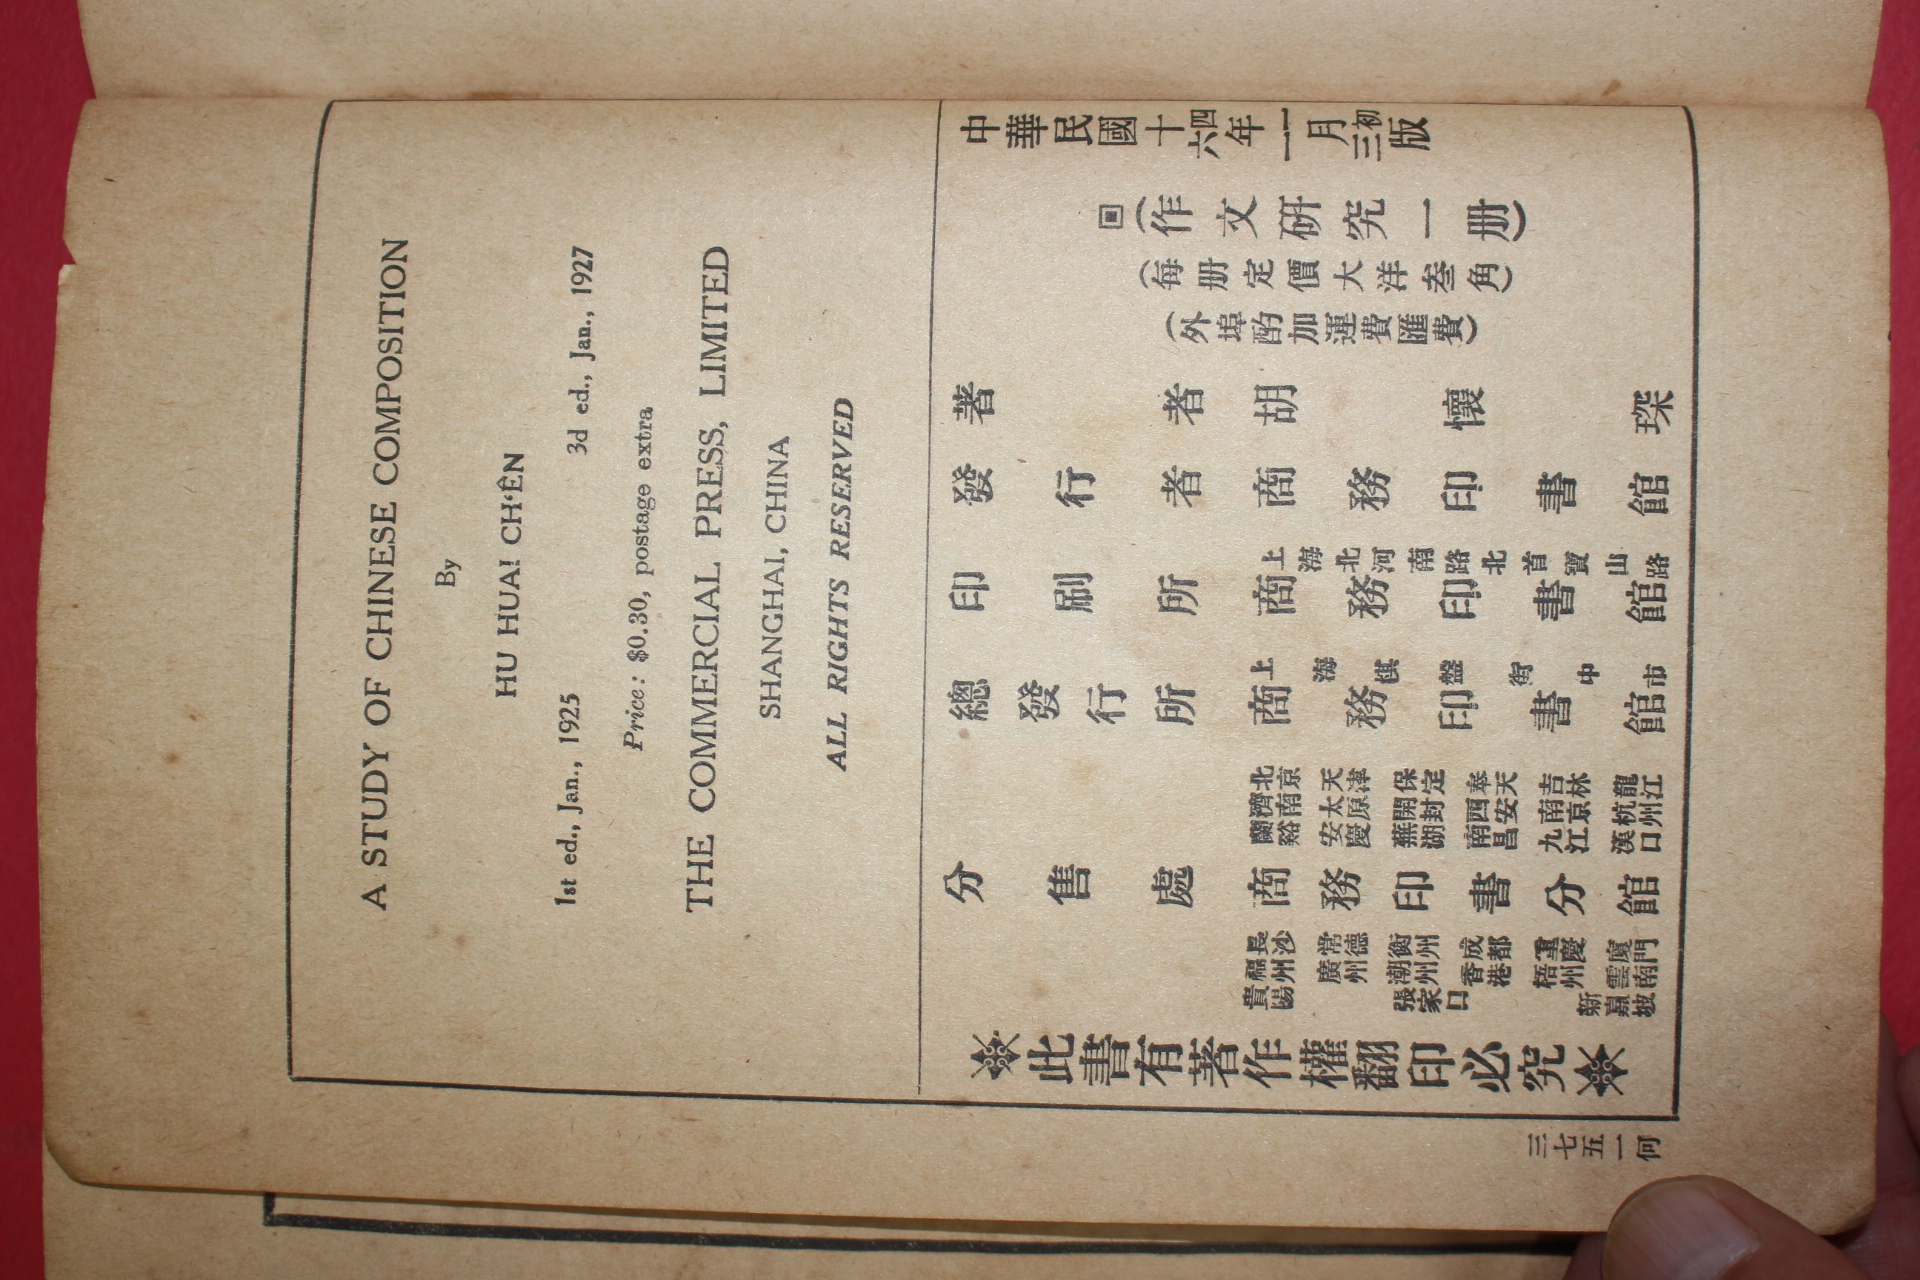 A STUDY OF CHINESE COMPOSITION
By
HU HUAI CH‘ÊN
1st ed., Jan., 1925 3d ed., Jan., 1927
Price: $0.30, postage extra
THE COMMERCIAL PRESS, LIMITED
SHANGHAI, CHINA
ALL RIGHTS RESERVED
中華民國十四年一月初版
六 一 三
回(作文研究一册)
(每册定價大洋叁角)
(外埠酌加運費匯費)
著者 胡懷琛
發行者 商務印書館
上海北河南路北首寶山路
印刷所 商務印書館
上海棋盤街中市
總發行所 商務印書館
北京 天津 保定 奉天 吉林 龍江
濟南 太原 開封 西安 南京 杭州
蘭谿 安慶 蕪湖 南昌 九江 漢口
分售處 商務印書分館
長沙 常德 衡州 成都 重慶 廈門
福州 廣州 潮州 香港 梧州 雲南
貴陽 張家口 新嘉坡
此書有著作權翻印必究
三七五一何